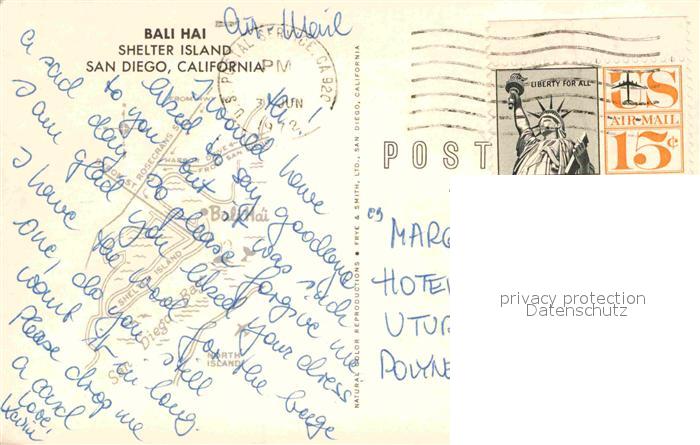 Air Mail
BALI HAI
SHELTER ISLAND
SAN DIEGO, CALIFORNIA
U.S. POSTAL SERVICE, CA 920
PM
30 JUN
1972
Hi!
I would have
liked to say goodbye
to you but it was such
a sad day so please forgive me
I am glad you liked your dress
I have the wool for the beige
one, do you still
want it in long.
Please drop me
a card
Love,
Karin
HARBOR DRIVE
FROM SAN
Bali Hai
SHELTER ISLAND
San Diego Bay
NORTH
ISLAND
NATURAL COLOR REPRODUCTIONS • FRYE & SMITH, LTD., SAN DIEGO, CALIFORNIA
POST
LIBERTY FOR ALL
US
AIR MAIL
15¢
MARG
HOTEL
UTUR
POLYNE
privacy protection
Datenschutz